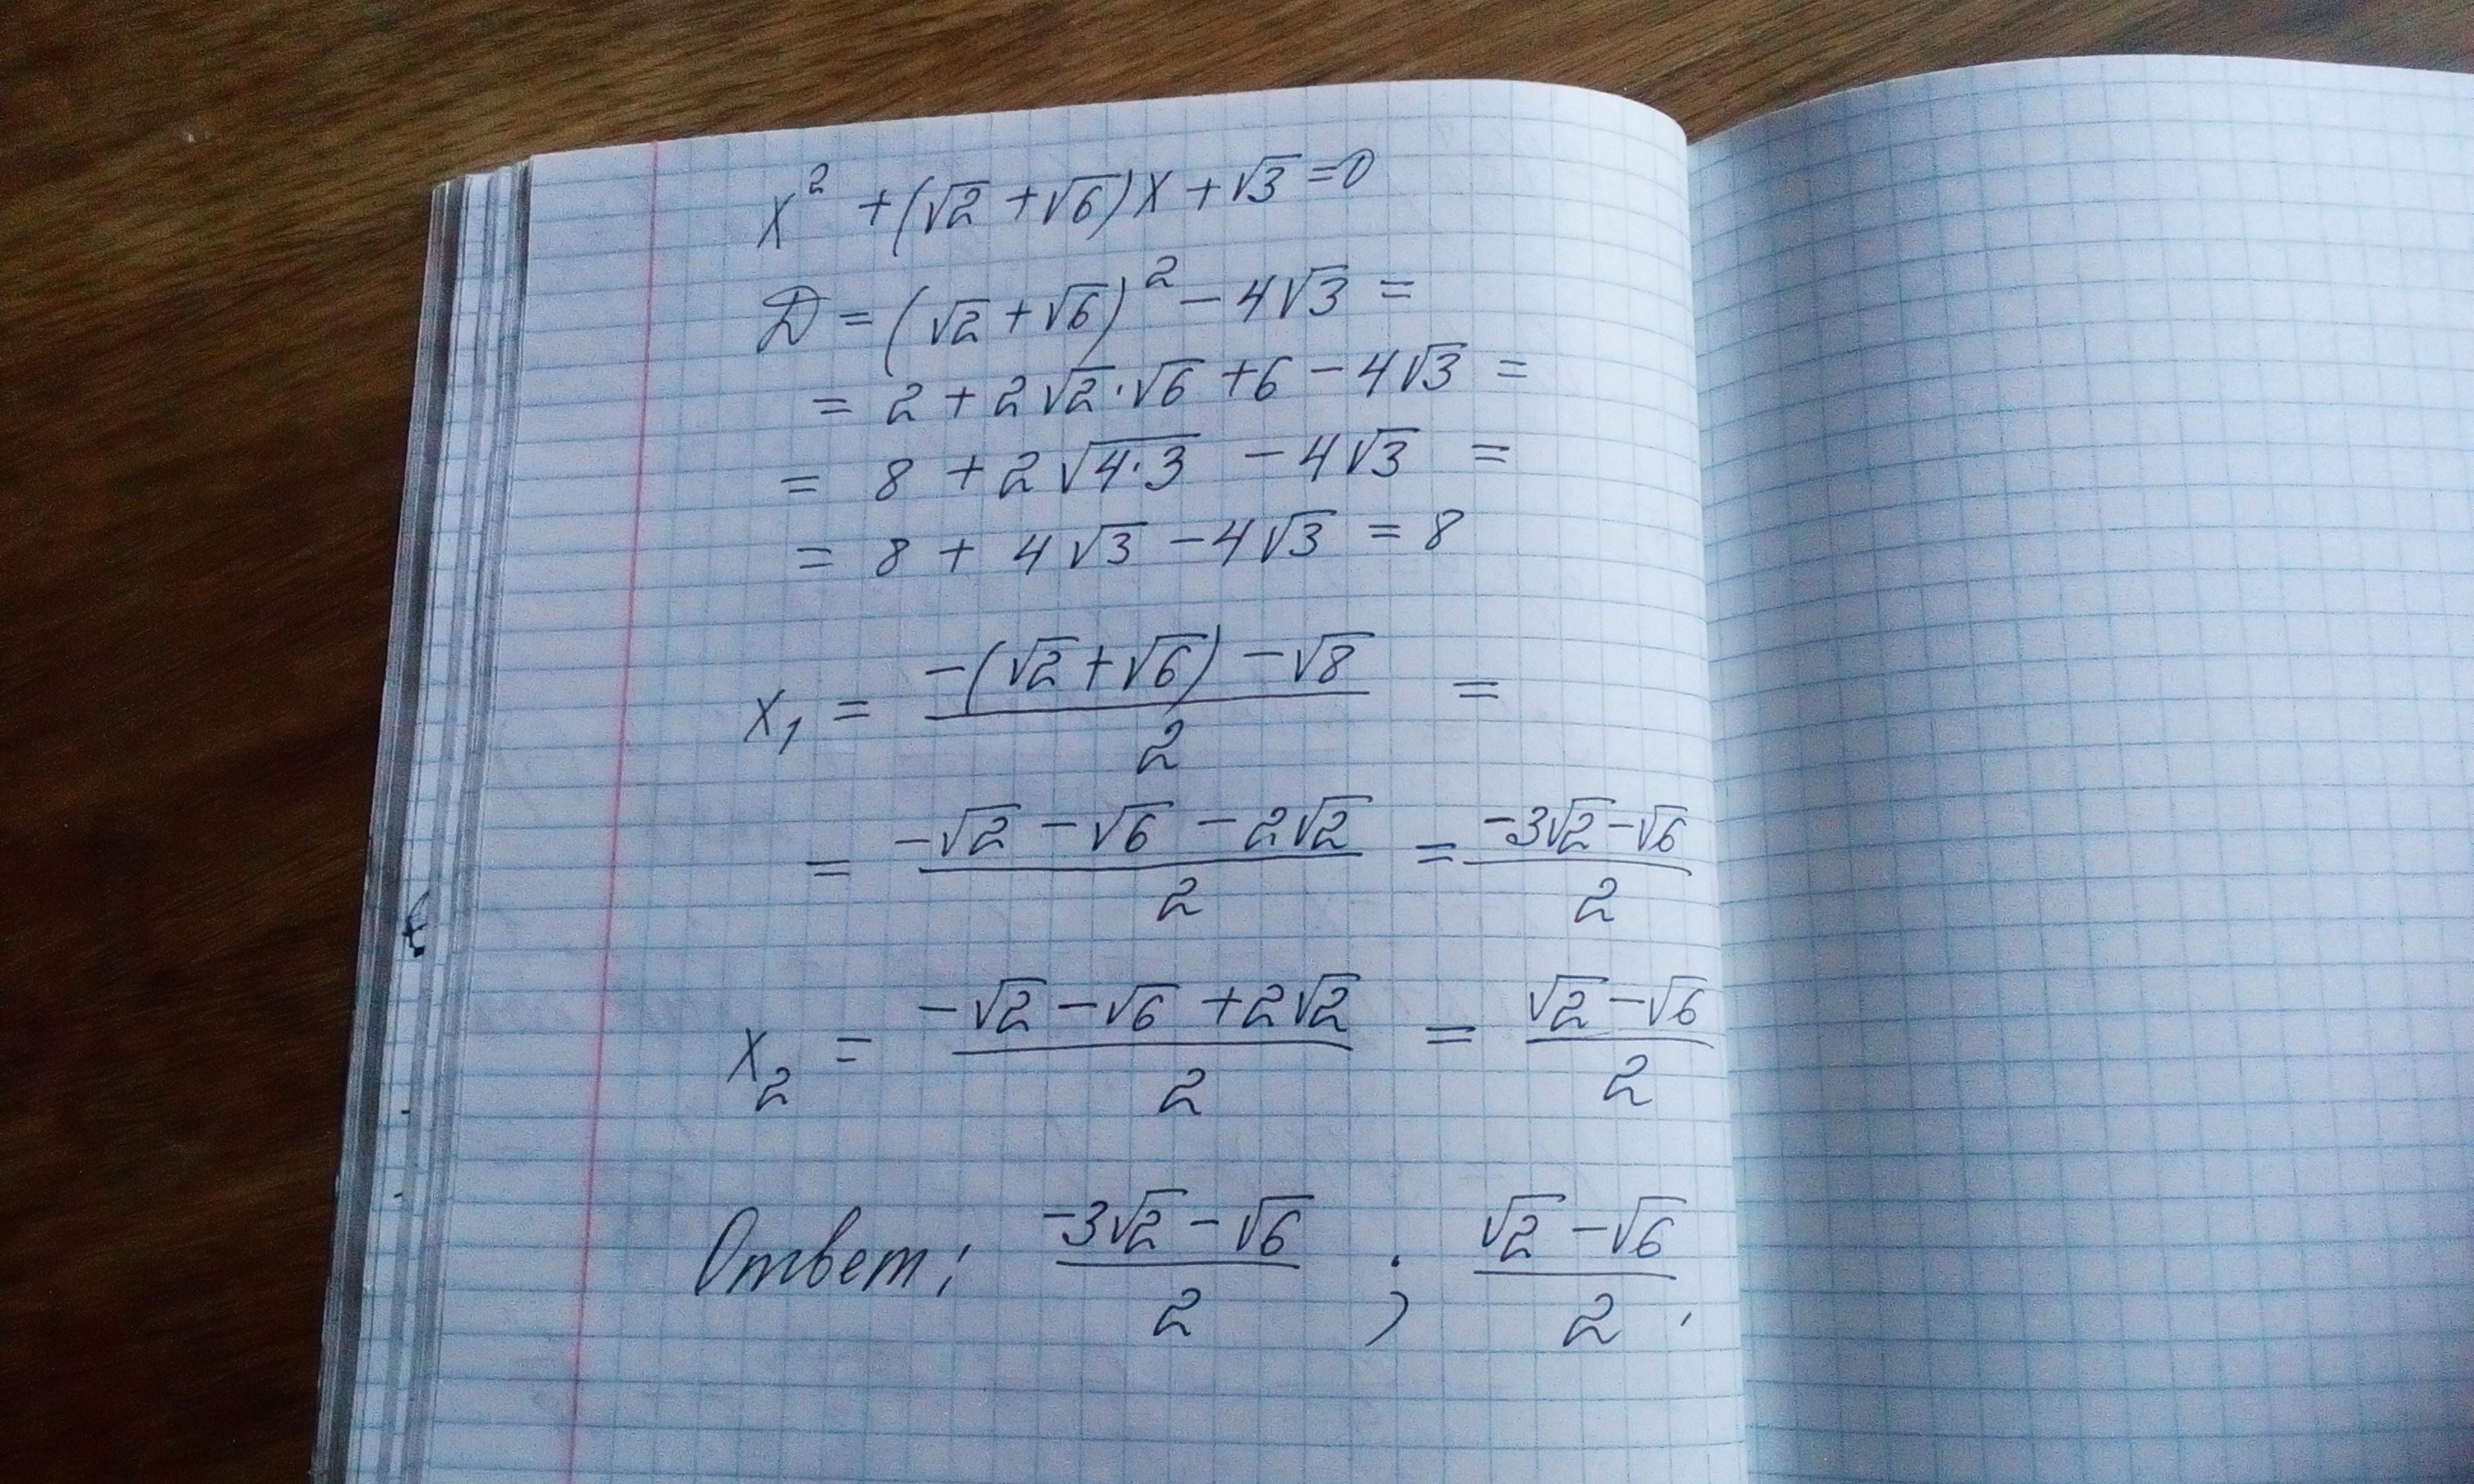 x² + (√2 + √6)x + √3 = 0
D = (√2 + √6)² − 4√3 =
= 2 + 2√2·√6 + 6 − 4√3 =
= 8 + 2√(4·3) − 4√3 =
= 8 + 4√3 − 4√3 = 8
x₁ = (−(√2 + √6) − √8)/2 =
= (−√2 − √6 − 2√2)/2 = (−3√2 − √6)/2
x₂ = (−√2 − √6 + 2√2)/2 = (√2 − √6)/2
Ответ: (−3√2 − √6)/2 ; (√2 − √6)/2.